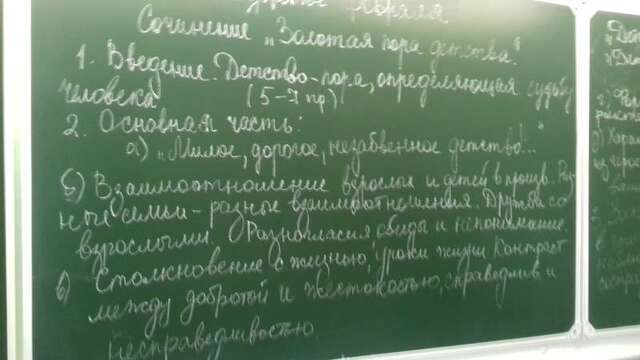 февраля
Сочинение „Золотая пора детства"
1. Введение. Детство-пора, определяющая судьбу
человека (5-7 пр)
2. Основная часть:
а) „Милое, дорогое, незабвенное детство!.."
б) Взаимоотношение взрослых и детей в произв.. Раз-
ные семьи - разные взаимоотношения. Дружба со
взрослыми. Разногласия обиды и непонимание.
в) Столкновение с жизнью, уроки жизни Контраст
между добротой и жестокостью, справедлив. и
несправедливостью